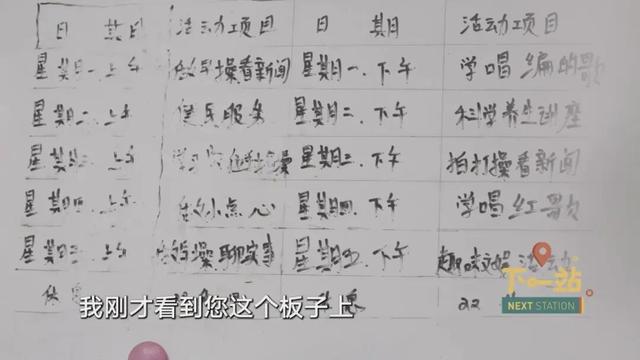 日 期 活动项目 日 期 活动项目
星期一.上午 做手操看新闻 星期一.下午 学唱编的歌
星期二.上午 便民服务 星期二.下午 科学养生讲座
星期三.上午 学习 操 星期三.下午 拍打操看新闻
星期四.上午 小点心 星期四.下午 学唱红歌
星期五.上午 操聊家事 星期五.下午 趣味文娱活动
休
我刚才看到您这个板子上
下一站
NEXT STATION